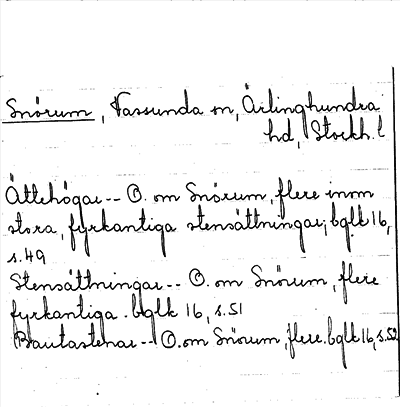 Snörum, Vassunda sn, Ärlinghundra
hd, Stockh. l
Ättehögar -- O. om Snörum, flere inom
stora, fyrkantiga stensättningar; bglk 16,
s. 49
Stensättningar -- O. om Snörum, flere
fyrkantiga. bglk 16, s. 51
Bautastenar -- O. om Snörum, flere. bglk 16, s. 52